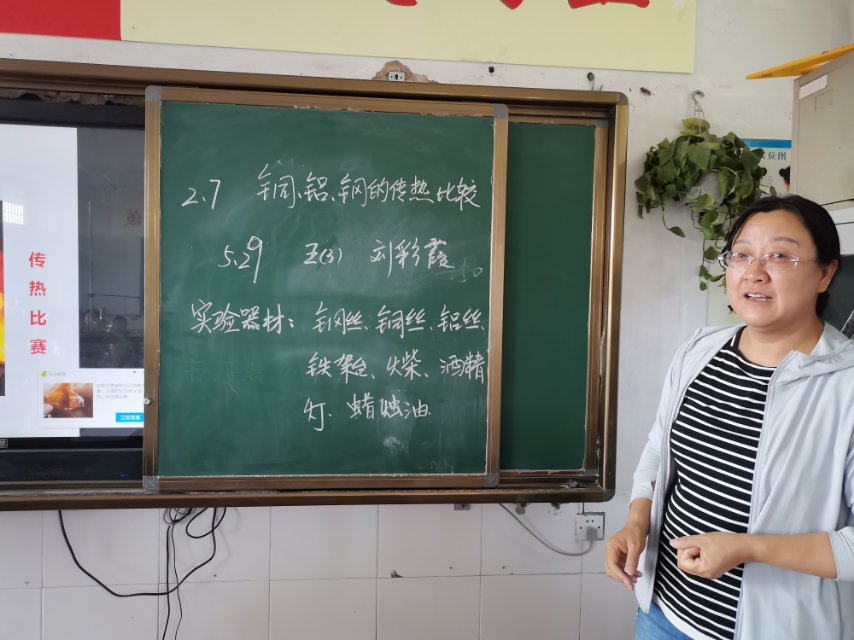 2.7 铜、铝、钢的传热比较
5.29 Z(3) 刘彩霞
实验器材：钢丝、铜丝、铝丝、
铁架台、火柴、酒精
灯、蜡烛油
传热比赛
立即查看
位图